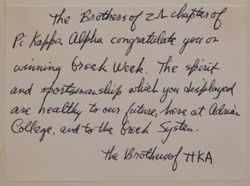 The Brothers of ZΛ chapter of
Pi Kappa Alpha congratulate you on
winning Greek Week. The spirit
and sportsmanship which you displayed
are healthy to our future, here at Adrian
College, and to the Greek System.
The Brothers of ΠKA